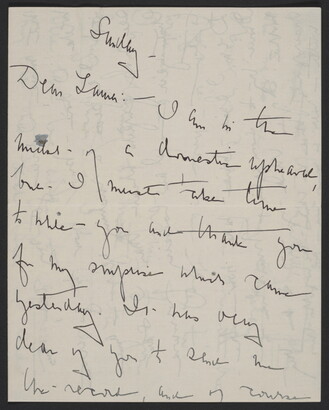 Sunday -
Dear Lama: - I am in the
midst of a domestic upheaval,
but I must take time
to write you and thank you
for my surprise which came
yesterday. It was very
dear of you to send me
the record, and of course